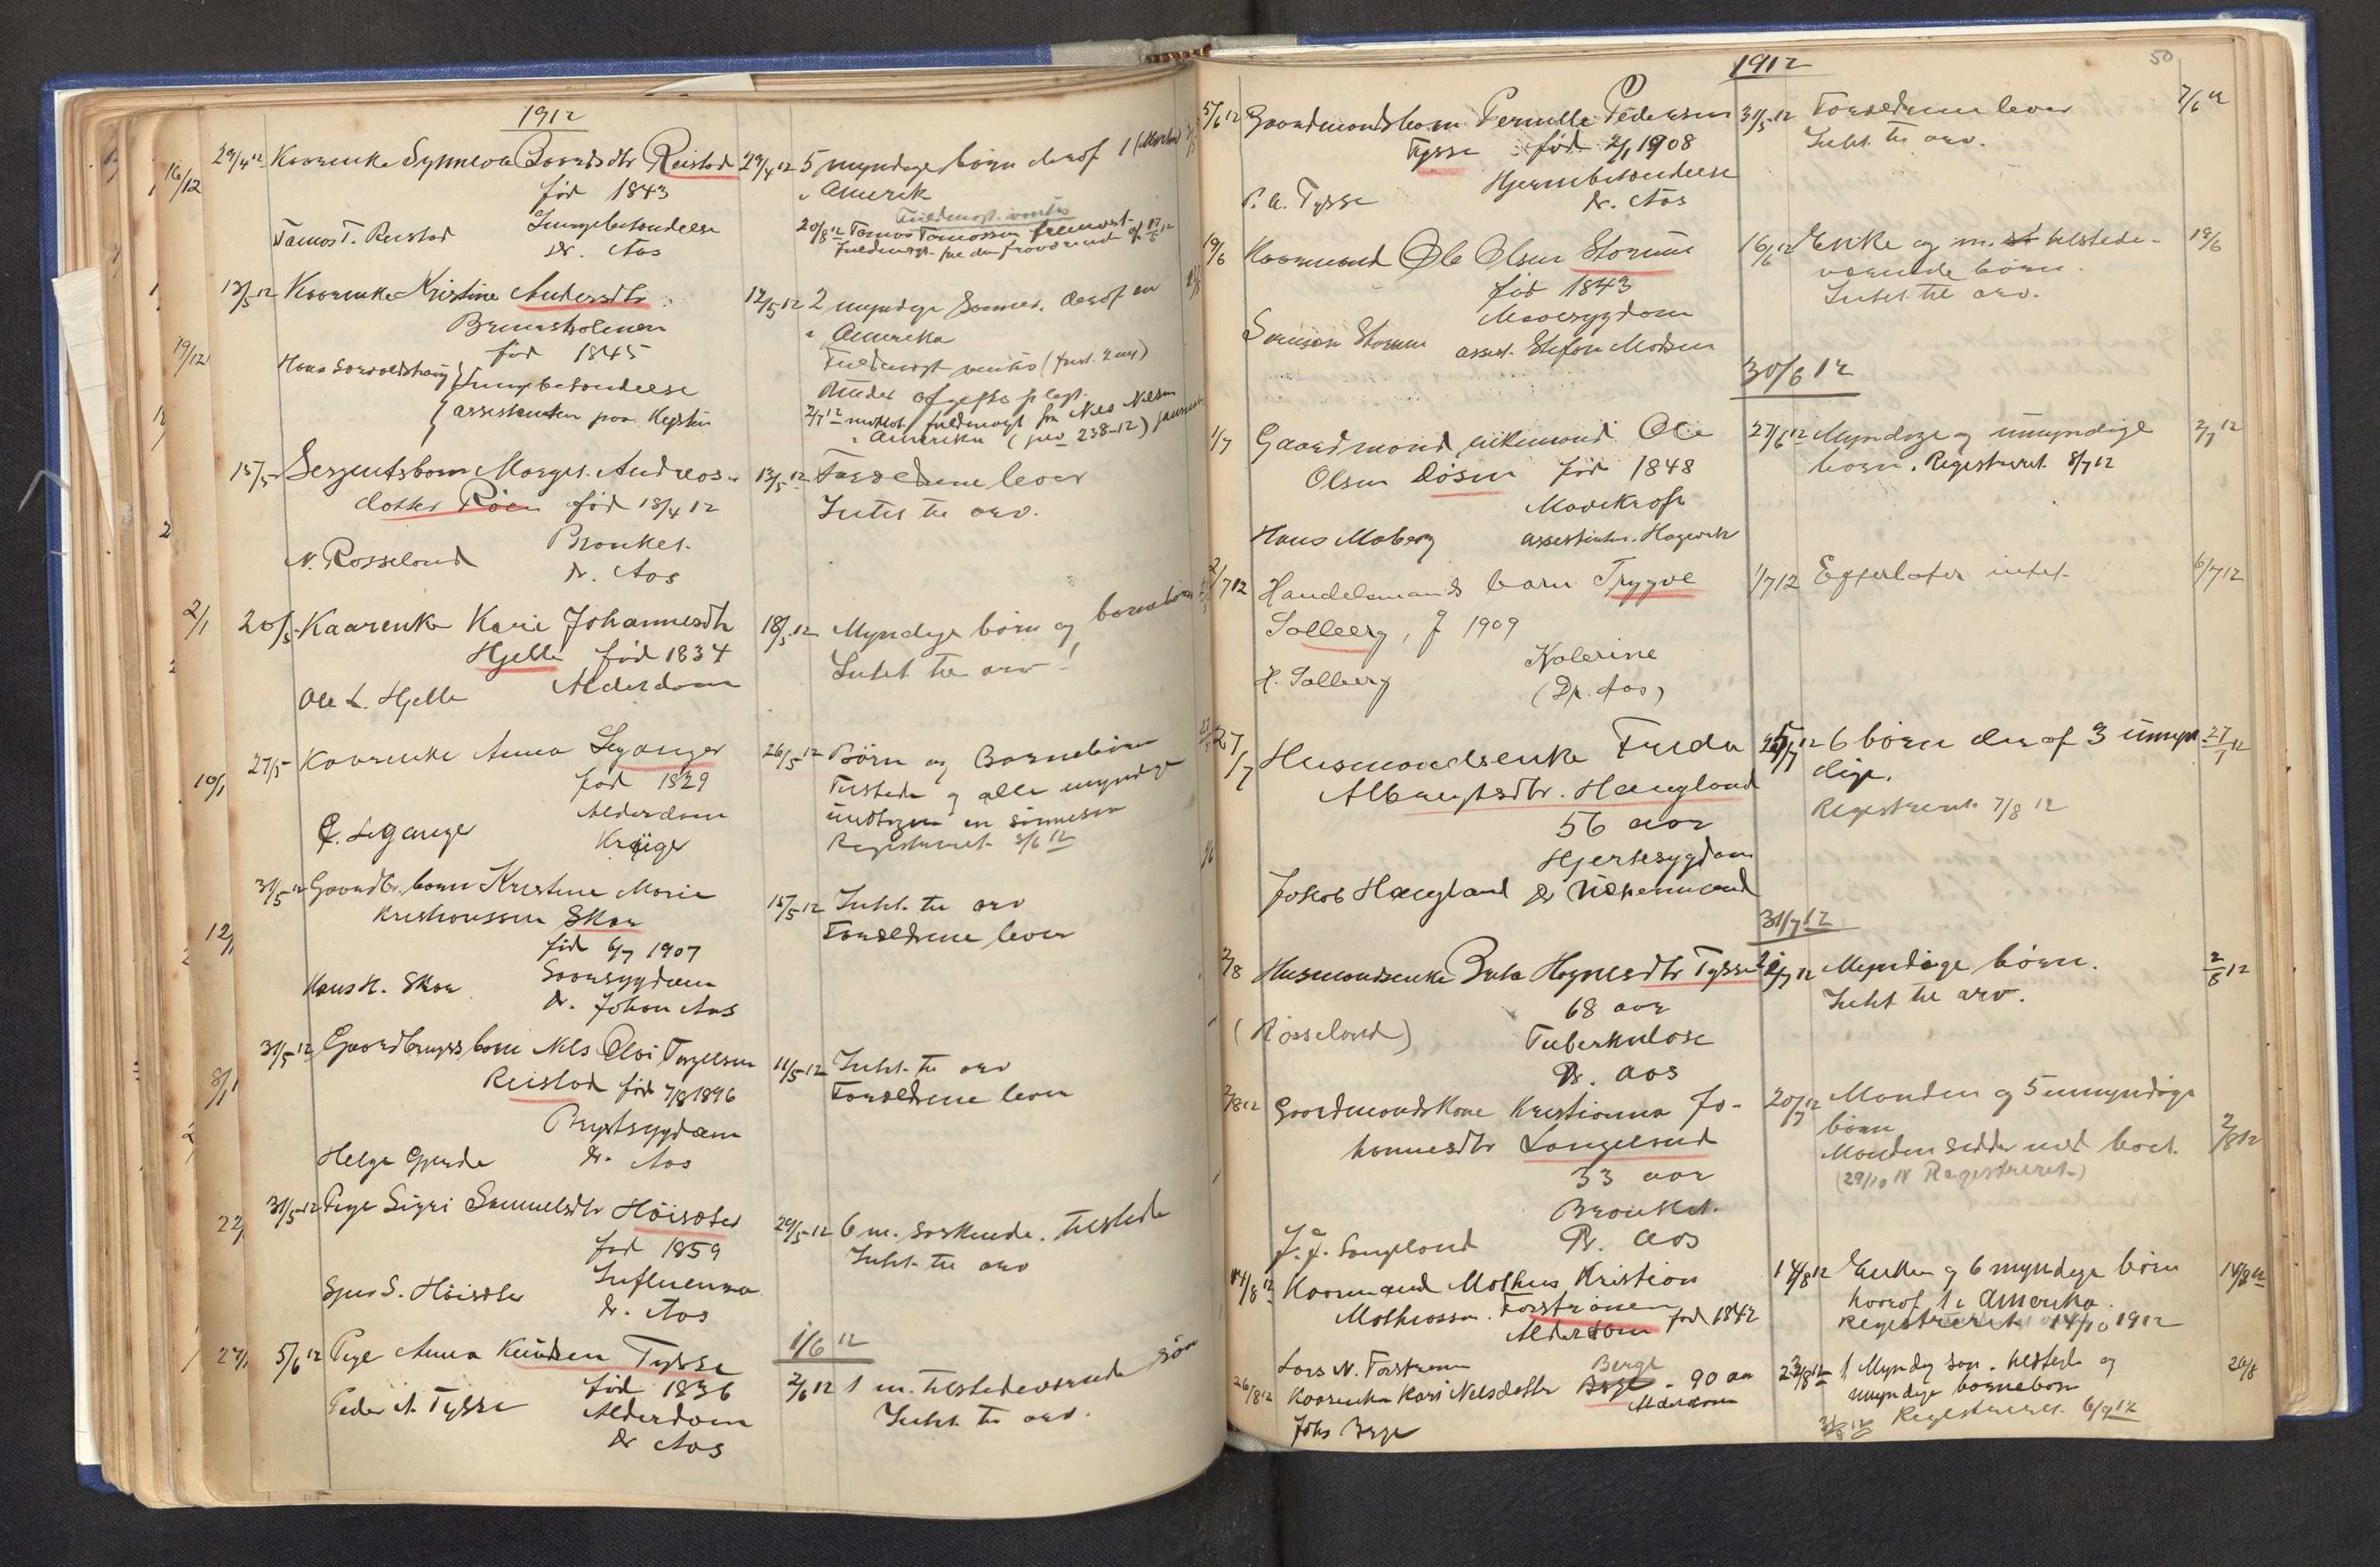 1912
29/4 12 Kaarenke Synneva Baardsdtr Reistad 29/4 12 5 myndige børn derof 1
født 1843 i Amerik
Lungebetændelse Fuldmagt ventes
Tomas T. Reistad Dr. Aas 20/8 12 Tomas Tomassen fremvist
Fuldmagt fra den fraværende af 17/5 12
13/5 12 Kaarenke Kristine Andersdtr 12/5 12 2 myndige sønner. derof en
Brunesholmen i Amerika
født 1845 Fuldmagt ventes (frist 2 mrd)
Hans Lungebetændelse
assistenten paa 2/7 12 mottat fuldmagt fra Nils Nilsen
i Amerika (jno 238-12)
15/5 Sersjentsbarn Marget. Andreas- 13/5 12 Forældrene lever
datter Røen født 18/4 12 Intet til arv.
N. Rosseland Bronket.
Dr. Aas
20/5 Kaarenke Kari Johannesdtr 18/5 12 Myndige børn og barnebørn
Hjelle født 1834 Intet til arv!
Ole L. Hjelle Alderdom
27/5 Kaarenke Anna Leganger 26/5 12 Børn og Barnebørn
født 1829 Tilstede og alle myndige
Alderdom undtagen en sønnesøn
Leganger Krüger Registreret 3/6 12
31/5 12 Gaardbr. barn Kristine Marie
Kristianssen Skaar 15/5 12 Intet til arv
født 6/7 1907 Forældrene lever
Hans H. Skaar
Dr. Johan Aas
31/5 12 Gaardbrugers barn Nils Olai Torgilsen 11/5 12 Intet til arv
Reistad født 7/8 1896 Forældrene lever
Brystsygdom
Helge Gjerde Dr. Aas
31/5 12 Pige Sigri Samuelsdtr Høisæter 29/5 12 6 m. søskende. tilstede
født 1859 Intet til arv
Influenza
S. Høisæter Dr. Aas
1/6 12
5/6 12 Pige Anna Knudsen Tysse 2/6 12 1 m. tilstedeværende søn
født 1836 Intet til arv.
Peder A. Tysse Alderdom
Dr Aas
1912
50
5/6 12 Gaardmandsbarn Pernille Pedersen 31/5 12 Forældrene lever 7/6 12
Tysse født 2/1 1908 Intet til arv.
Hjernebetændelse
P. A. Tysse Dr. Aas
19/6 Kaarmand Ole Olsen Storum 16/6 12 Enke og m. tilstede- 19/6
født 1843 værende børn.
Mavesygdom Intet til arv.
Storum assist. Stefan Madsen
30/6 12
1/7 Gaardmand, enkemand Ole 27/6 12 Myndige og umyndige 2/7 12
Olsen Døsen født 1848 børn. Registreret 8/7 12
Mavekræft
Hans Moberg assistenten. Hagevik
2/7 12 Handelsmands barn Trygve 1/7 12 Efterlater intet 6/7 12
Solberg, f 1909
Kolerine
H. Solberg (Dr. Aas)
27/7 Husmandsenke Frida 25/7 12 6 børn derof 3 umyn- 27/7 12
Albregtsdtr. Haugland dige.
56 aar Registreret 7/8 12
Hjertesygdom
Jakob Haugland Dr
31/7 12
2/8 Husmandsenke Brita Hognesdtr Tysse 12 Myndige børn. 2/8 12
68 aar Intet til arv.
(Rosseland) Tuberkulose
Dr. Aas
2/8 12 Gaardmandskone Kristianna Jo- 20/7 12 Manden og 5 umyndige
hannesdtr Langeland børn
33 aar Manden sidder med boet. 2/8 12
Bronkit. (29/10 14 Registreret)
J. J. Langeland Dr. Aas
14/8 12 Kaarmand Mathias Kristian 14/8 12 Enken og 6 myndige børn 14/8 12
Mathiassen. født 1842 hvorof 1 i Amerika.
Alderdom Registreret 14/10 1912
Lars N. Berge
26/8 12 Kaarenke Kari Nilsdatter - 90 aar 23/8 12 1 Myndig søn. tilstede og 26/8
Alderdom myndige barnebørn
Johs Berge Registreret 6/9 12